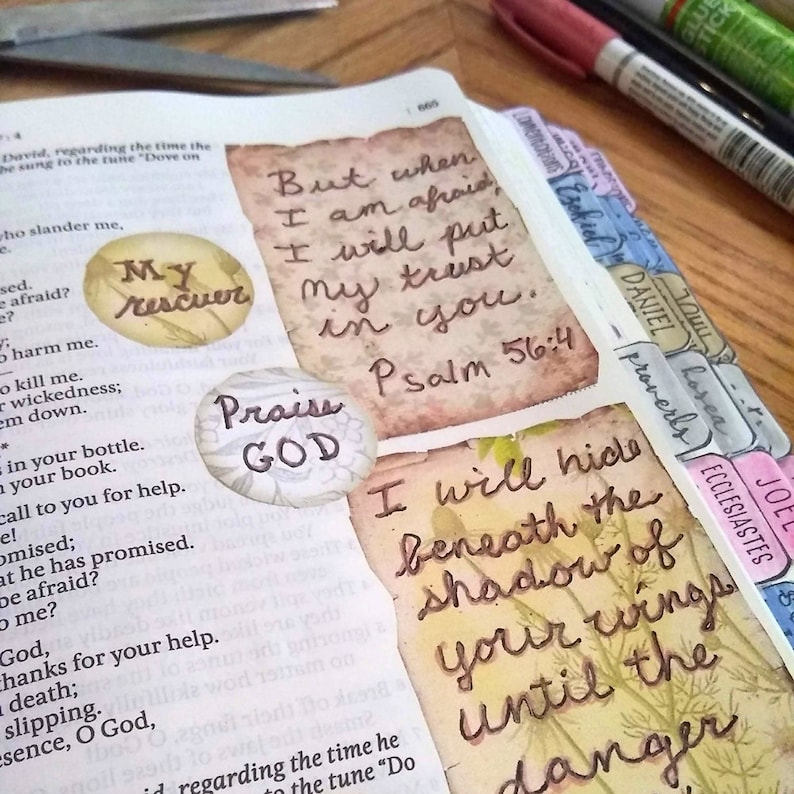 665
7:4
David, regarding the time the
be sung to the tune "Dove on
who slander me,
e.
sed.
e afraid?
e?
y;
o harm me.
o kill me.
r wickedness;
em down.
*
s in your bottle.
n your book.
call to you for help.
e!
omised;
at he has promised.
be afraid?
o me?
God,
thanks for your help.
death;
slipping.
esence, O God,
regarding the time he
to the tune "Do
My
rescuer
Praise
GOD
But when
I am afraid,
I will put
my trust
in you.
Psalm 56:4
I will hide
beneath the
shadow of
your wings
until the
danger
GLUE
STICK
LAMENTATIONS
Ezekiel
DANIEL
proverbs
hosea
ECCLESIASTES
JOEL